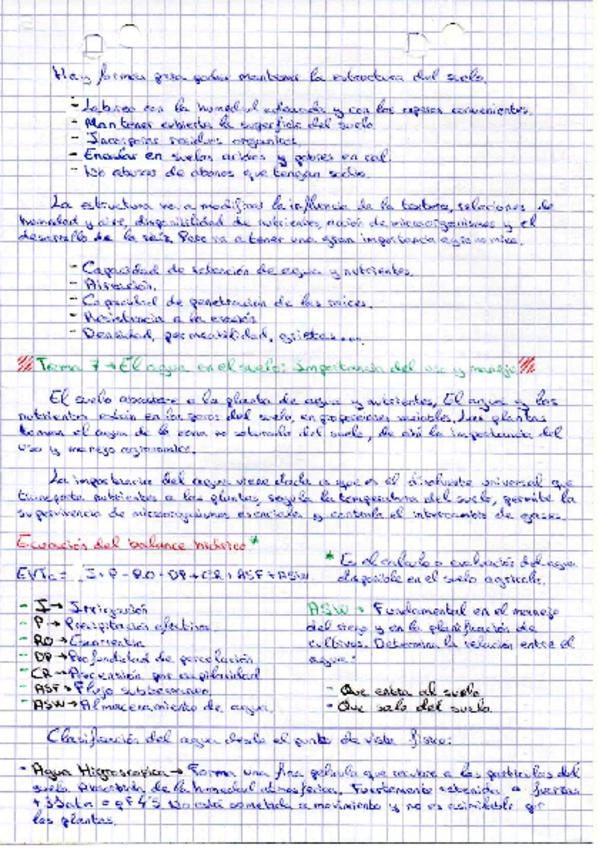 Hay formas para poder mantener la estructura del suelo.
- Laboreo con la humedad adecuada y con los aperos convenientes.
- Mantener cubierta la superficie del suelo
- Incorporar residuos orgánicos.
- Encalar en suelos acidos y pobres en cal.
- No abusar de abonos que tengan sodio.
La estructura va a modificar la influencia de la textura, relaciones de
humedad y aire, disponibilidad de nutrientes, acción de microorganismos y el
desarrollo de la raíz. Pero va a tener una gran importancia agronomica.
- Capacidad de retención de agua y nutrientes.
- Aireación.
- Capacidad de penetración de las raices.
- Resistencia a la erosión
- Densidad, permeabilidad, grietas...
Tema 7 → El agua en el suelo: Importancia del uso y manejo
El suelo abastece a la planta de agua y nutrientes. El agua y los
nutrientes están en los poros del suelo, en proporciones variables. Las plantas
toman el agua de la zona no saturada del suelo, de ahí la importancia del
uso y manejo agronomico.
La importancia del agua viene dada a que es el disolvente universal que
transporta nutrientes a las plantas, regula la temperatura del suelo, permite la
supervivencia de microorganismos esenciales y controla el intercambio de gases.
Ecuación del balance hídrico *
EVTc = I + P - RO - DP + CR ± ASF ± ASW
- I → Irrigación
- P → Precipitación efectiva
- RO → Escorrentía
- DP → Profundidad de percolación
- CR → Ascensión por capilaridad
- ASF → Flujo subterraneo
- ASW → Almacenamiento de agua.
* Es el calculo o evaluación del agua
disponible en el suelo agrícola.
ASW → Fundamental en el manejo
del riego y en la planificación de
cultivos. Determina la relación entre el
agua:
- Que entra al suelo
- Que sale del suelo.
Clasificación del agua desde el punto de vista físico:
- Agua Higroscopica → Forma una fina película que recubre a las partículas del
suelo. Procedente de la humedad atmosferica. Fuertemente retenida a fuerzas
+ 33 atm = pF 4'5 No está sometida a movimiento y no es asimilable por
las plantas.